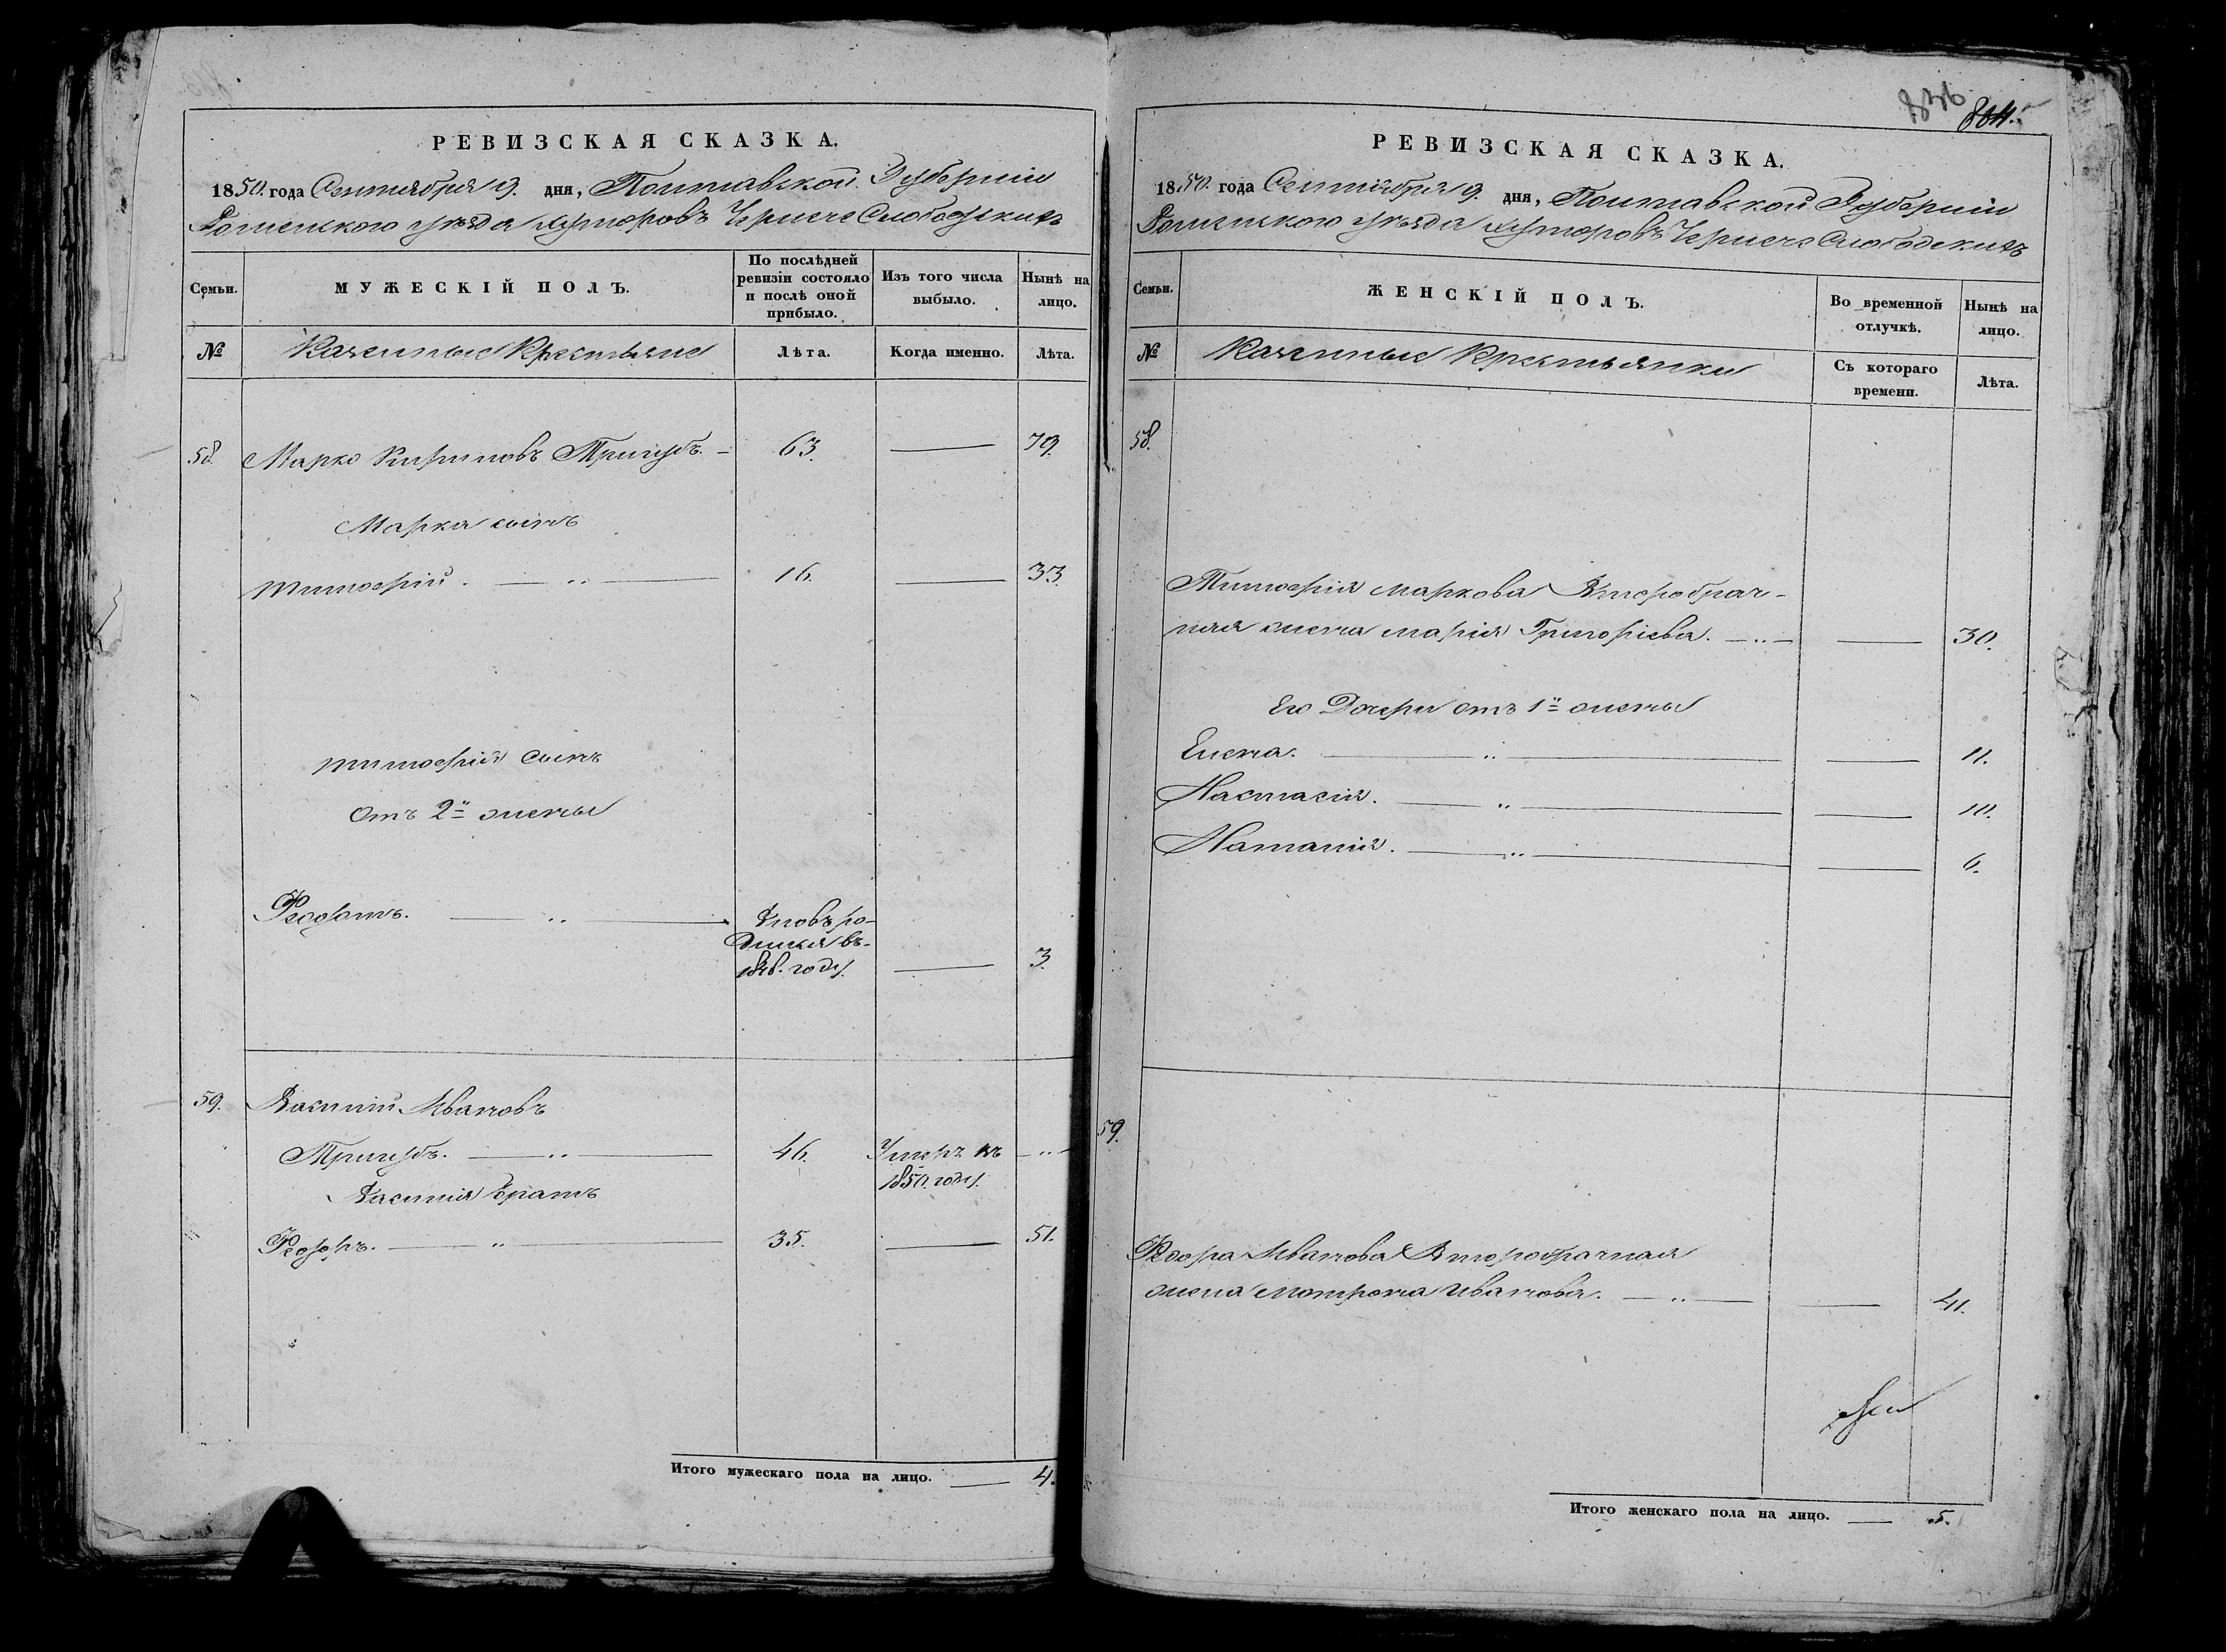 РЕВИЗСКАЯ СКАЗКА.
1850. года Сентября 9. дня, Полтавской Губернии
Роменского уѣзда хуторовъ Чернече Слободскихъ
Семьи.
МУЖЕСКІЙ ПОЛЪ.
По послѣдней ревизіи состояло и послѣ оной прибыло.
Изъ того числа выбыло.
Нынѣ на лицо.
№
Казенные Крестьяне
Лѣта.
Когда именно.
Лѣта.
58. Марко Кириловъ Тригубъ. 63. 79.
Марка сынъ
Тимофѣй. 16. 33.
Тимофѣя сынъ
отъ 2й жены
Феодотъ. Вновь ро-
дился въ
1848. году. 3.
59. Василий Ивановъ
Тригубъ. 46. Умеръ въ
1850. году.
Василия братъ
Феодоръ. 35. 51.
Итого мужескаго пола на лицо. 4.
836
804.
РЕВИЗСКАЯ СКАЗКА.
1850. года Сентября 9. дня, Полтавской Губернии
Роменского уѣзда хуторовъ Чернече Слободскихъ
Семьи.
ЖЕНСКІЙ ПОЛЪ.
Во временной отлучкѣ.
Нынѣ на лицо.
№
Казенные Крестьянки
Съ котораго времени.
Лѣта.
58.
Тимофѣя Маркова Второбрач-
ная жена Марія Григоріева. 30.
Его Дочери отъ 1й жены
Елена. 11.
Настасія. 10.
Наталія. 6.
59.
Феодора Иванова Второбрачная
жена Мотрона Иванова. 41.
Итого женскаго пола на лицо. 5.